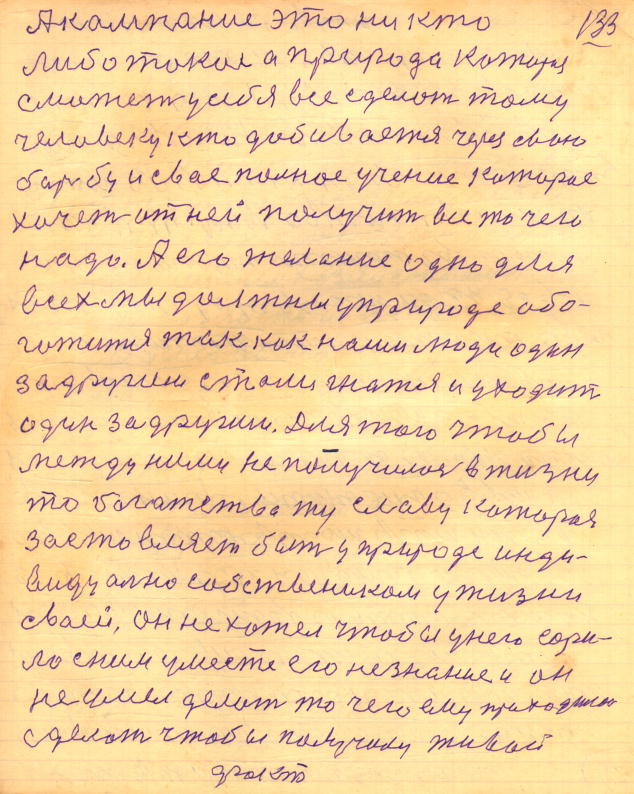 Акампание это ни кто 133
либо токая а природа Которя
сможет усебя все сделат тому
человеку кто добивается через свою
барбу и свае полное учение Которое
хочет от ней получит все то чего
надо. А его желание одно для
всех мы должны уприроде обо-
готится так как наши люди один
задругим стали гнатся и уходит
один задругим. Для того чтобы
между ними не получилося в жизни
то богатства ту славу Которая
заставляет быт уприроде инди-
видуално собствеником ужизни
сваей, Он не хотел чтобы унего гори-
ло сним уместе его незнание и он
не умел делат то чего ему приходилос
сделат чтобы получилу живой
факт